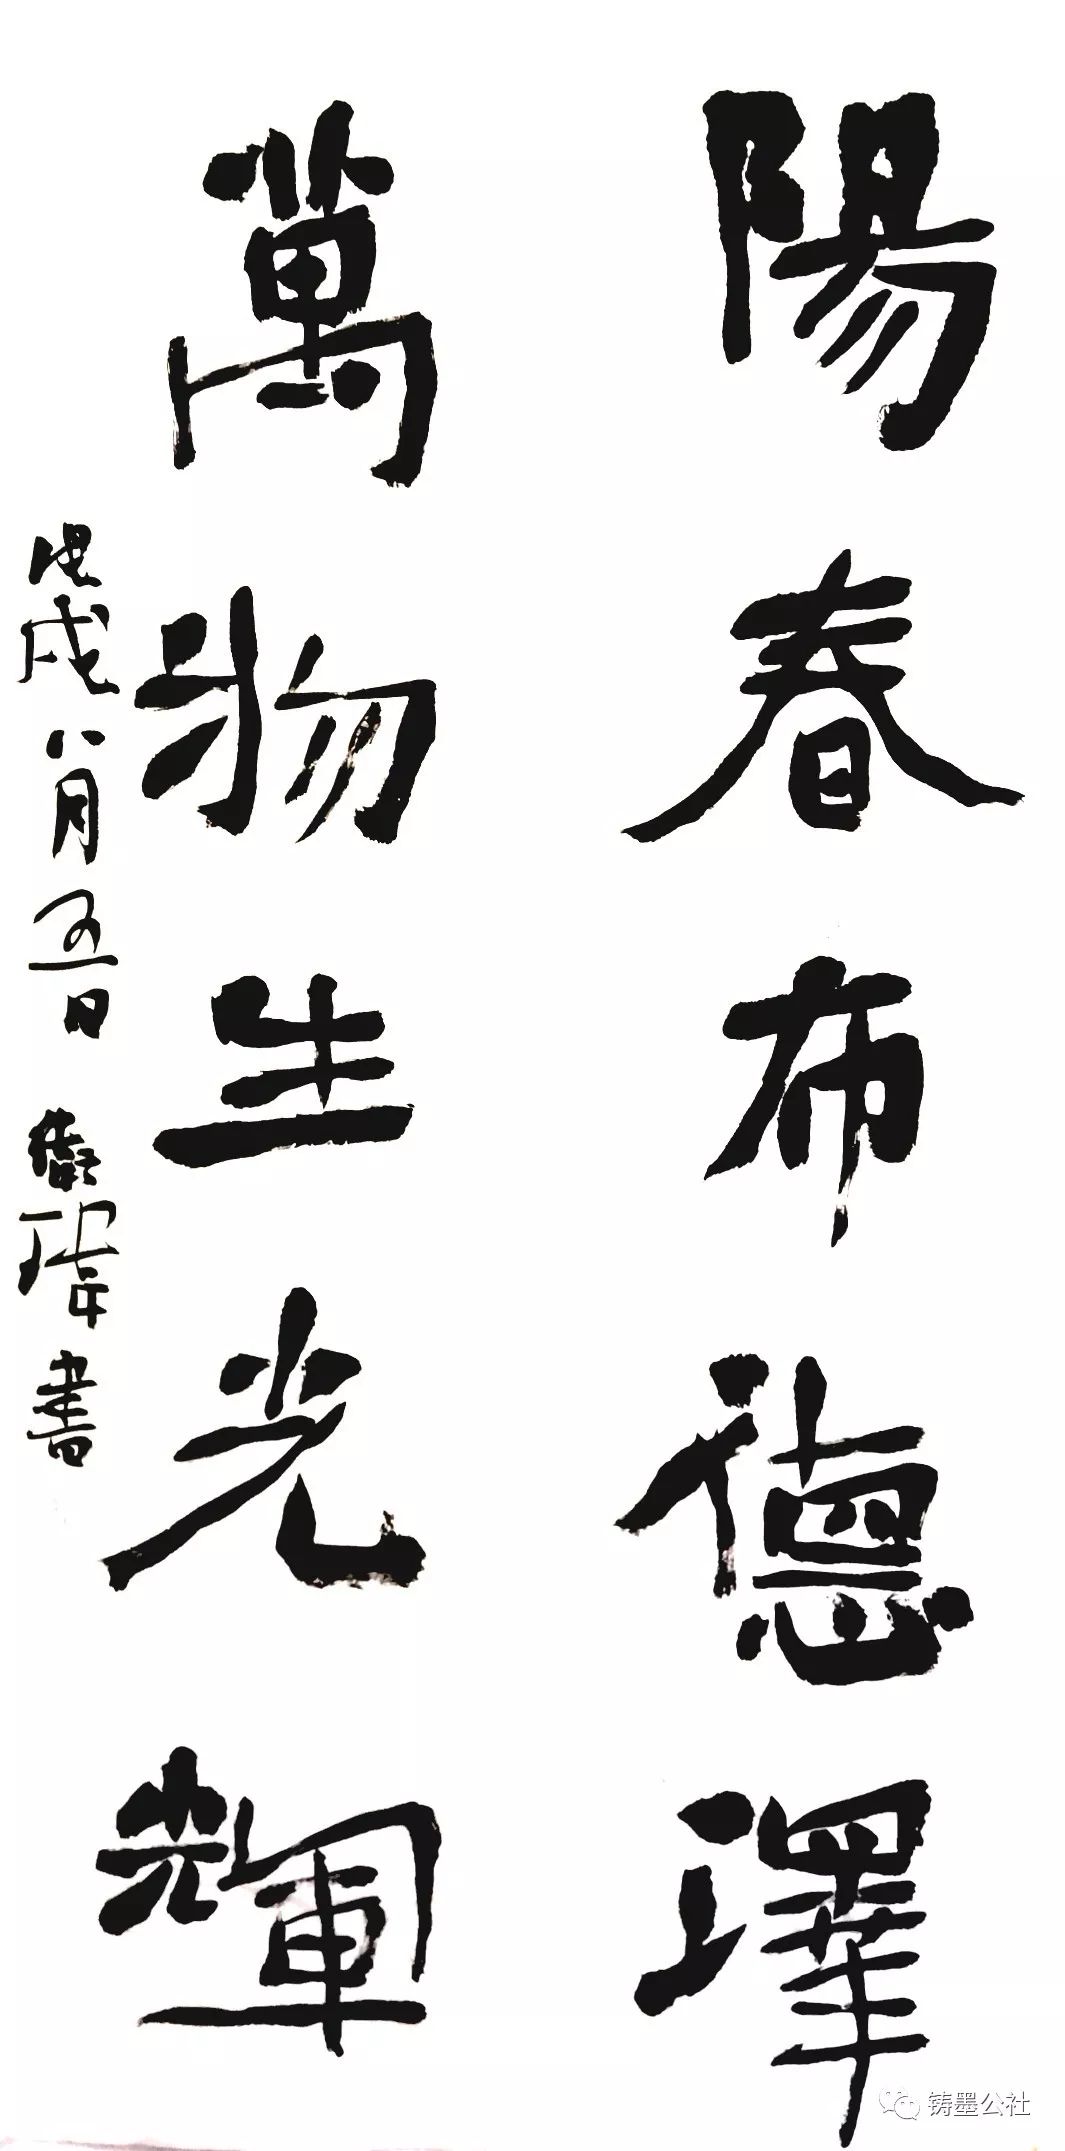 陽春布德澤
萬物生光輝
戊戌八月五日 瑋書
铸墨公社